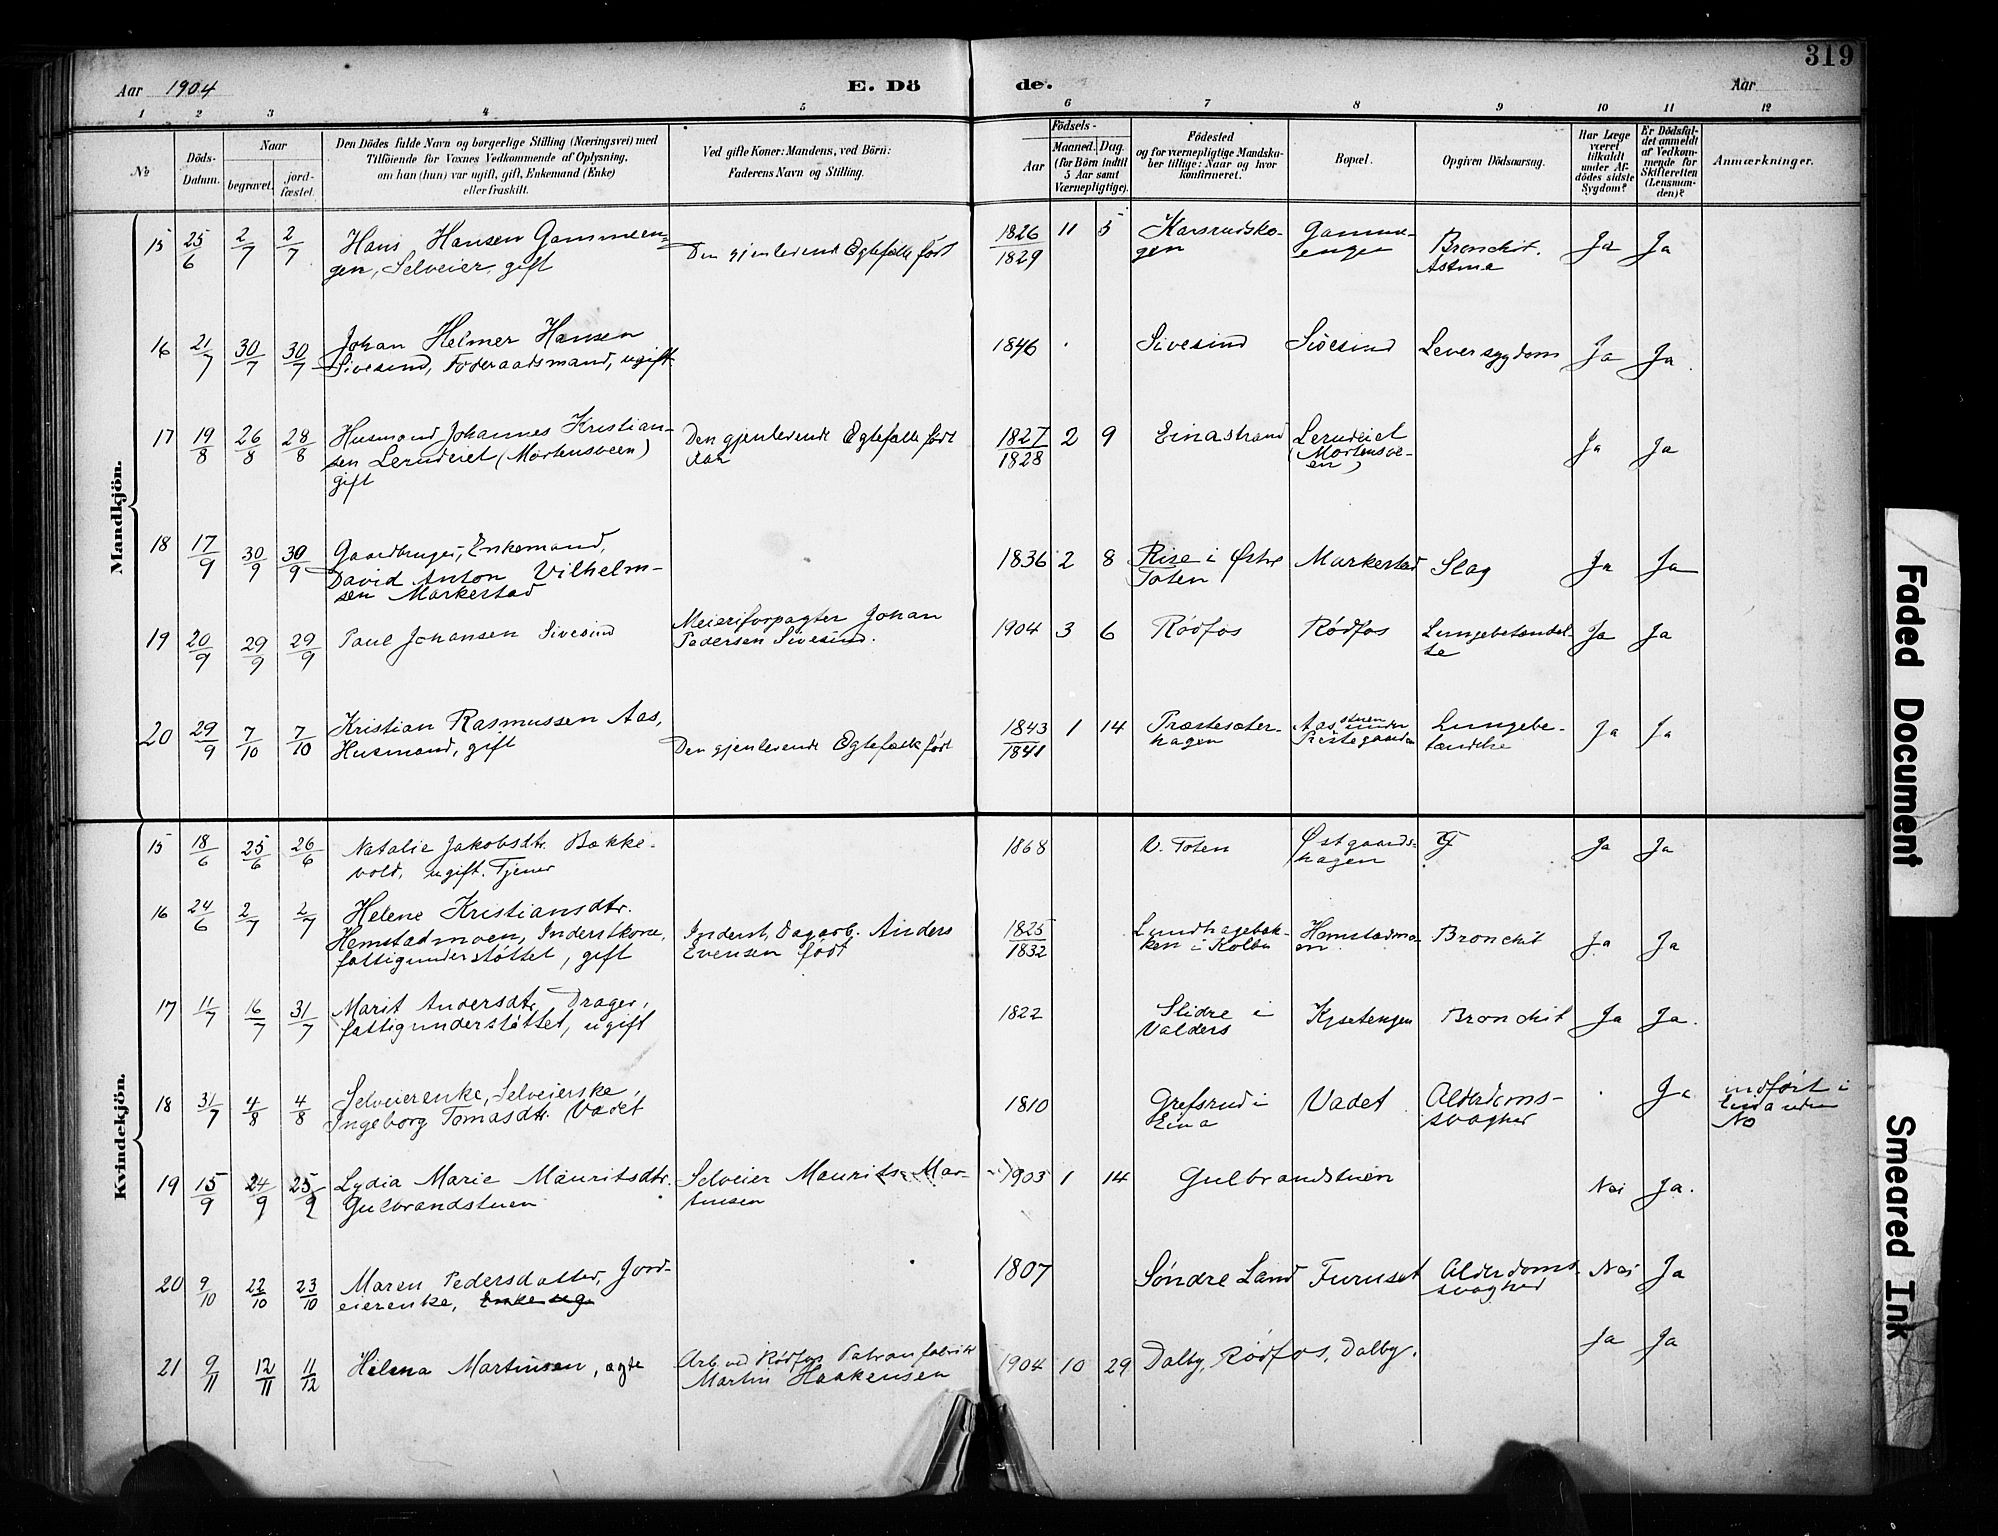 319
Aar 1904
E. Dö
de.
Aar
1 2 3 4 5 6 7 8 9 10 11 12
№
Döds-
Datum.
Naar
begravet.
jord-
fæstet.
Den Dödes fulde Navn og borgerlige Stilling (Næringsvei) med
Tilföiende for Voxnes Vedkommende af Oplysning,
om han (hun) var ugift, gift, Enkemand (Enke)
eller fraskilt.
Ved gifte Koner: Mandens, ved Börn:
Faderens Navn og Stilling.
Födsels-
Aar
Maaned. Dag.
(for Börn indtil
5 Aar samt
Værnepligtige).
Födested
og for værnepligtige Mandska-
ber tillige: Naar og hvor
konfirmeret.
Bopæl.
Opgiven Dödsaarsag.
Har Læge
været
tilkaldt
under Af-
dödes sidste
Sygdom?
Er Dödsfal-
det anmeldt
af Vedkom-
mende for
Skifteretten
(Lensman-
den)?
Anmærkninger.
Mandkjön.
15 25/6 2/7 2/7 Hans Hansen Gammeen-
gen, Selveier, gift
Den gjenlevende Egtefælle født
1826/1829 11 5
Karsrudsko-
gen
Gamme-
engen
Bronchit.
Astma
Ja Ja
16 21/7 30/7 30/7 Johan Helmer Hansen
Sivesind, Føderaadsmand, ugift.
1846
Sivesind Sivesind Leversygdom Ja Ja
17 19/8 26/8 28/8 Husmand Johannes Kristian-
sen Lerudeiet (Mortensveen)
gift
Den gjenlevende Egtefælle født
Aar
1827/1828 2 9 Einastrand
Lerudeiet
(Mortensve-
en)
Ja Ja
18 17/9 30/9 30/9 Gaardbruger, Enkemand,
David Anton Vilhelm-
sen Markestad
1836 2 8 Rise i Østre
Toten
Markestad Slag Ja Ja
19 20/9 29/9 29/9 Paul Johansen Sivesind
Meieriforpagter Johan
Pedersen Sivesind.
1904 3 6 Rødfos Rødfos Lungebetændel-
se
Ja Ja
20 29/9 7/10 7/10 Kristian Rasmussen Aas,
Husmand, gift
Den gjenlevende Egtefælle født
1843/1841 1 14 Præstesæter-
hagen
Aasstuen
under
Lungebe-
tændelse
Ja Ja
Kvindekjön.
15 18/6 25/6 26/6 Natalie Jakobsdtr. Bakke-
vold, ugift. Tjener
1868 V. Toten Østgaards-
hagen
Ja Ja
16 24/6 2/7 2/7 Helene Kristiansdtr.
Hemstadmoen, Inderstkone,
fattigunderstøttet, gift
Inderst, Dagarb. Anders
Evensen født
1825/1832
Lundhagebak-
ken i Kolbu
Hemstadmo-
en
Bronchit Ja Ja
17 11/7 16/7 31/7 Marit Andersdtr. Drager,
fattigunderstøttet, ugift
1822 Slidre i
Valders
Bronchit Ja Ja.
18 31/7 4/8 4/8 Selveierenke, Selveierske,
Ingeborg Tomasdtr. Vadet
1810 Grefsrud i
Eina
Vadet Alderdoms-
svaghed
Ja
indført i
Eina under
No
19 15/9 24/9 25/9 Lydia Marie Mauritsdtr.
Gulbrandstuen
Selveier Maurits Mar-
tinsen
1903 1 14 Gulbrandstuen Nei Ja.
20 9/10 22/10 23/10 Maren Pedersdatter, Jord-
eierenke,
1807 Søndre Land Furuset Alderdoms-
svaghed
Nei Ja
21 9/11 12/11 11/12 Helena Martinsen, ægte
Arb. ved Rødfos Patronfabrik
Martin Haakensen
1904 10 29 Dalby, Rødfos, Dalby. Ja Ja
Faded Document
Smeared Ink